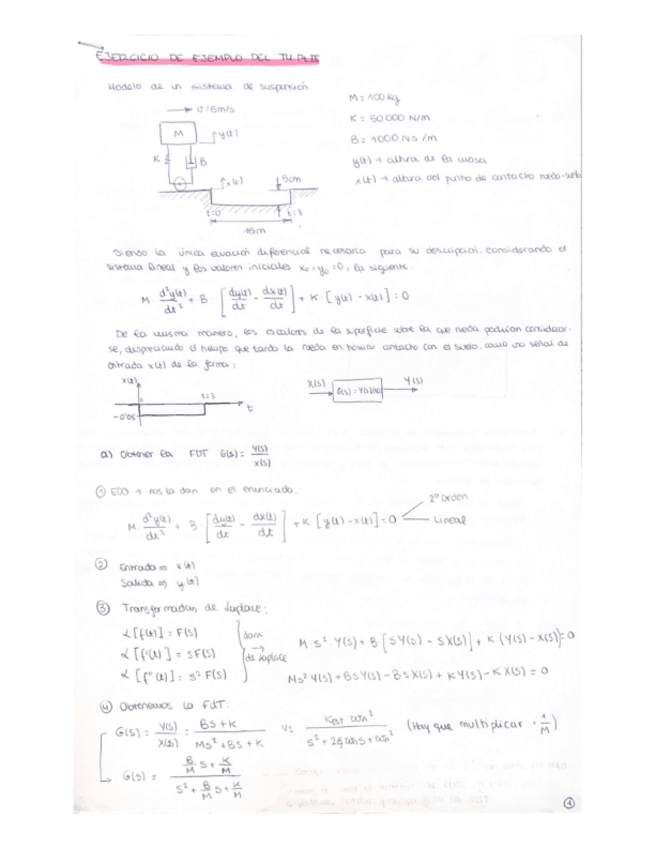 EJERCICIO DE EJEMPLO DEL T4 Pt II
Modelo de un sistema de suspensión
M = 100 kg
K = 50000 N/m
B = 1000 N s/m
y(t) → altura de la masa
x(t) → altura del punto de contacto rueda-suelo
v = 5 m/s
M
y(t)
K
B
x(t)
5cm
t=0
t=3
15m
Siendo la única ecuación diferencial necesaria para su descripción, considerando el
sistema lineal y los valores iniciales x₀ = y₀ = 0, la siguiente.
M · d²y(t)/dt² + B · [dy(t)/dt - dx(t)/dt] + K · [y(t) - x(t)] = 0
De la misma manera, los escalones de la superficie sobre la que rueda podrían considerar-
se, despreciando el tiempo que tarda la rueda en tomar contacto con el suelo, como una señal de
entrada x(t) de la forma:
x(t)
0
t=3
t
-0.05
X(s)
G(s) = Y(s)/X(s)
Y(s)
a) Obtener la FDT G(s) = Y(s)/X(s)
① EDO → nos la dan en el enunciado.
M · d²y(t)/dt² + B · [dy(t)/dt - dx(t)/dt] + K [y(t) - x(t)] = 0
2º orden
Lineal
② Entrada ⇒ x(t)
Salida ⇒ y(t)
③ Transformadas de Laplace:
ℒ[f(t)] = F(s)
ℒ[f'(t)] = sF(s)
ℒ[f''(t)] = s² F(s)
de Laplace
M · s² · Y(s) + B [SY(s) - SX(s)] + K (Y(s) - X(s)) = 0
Ms² Y(s) + BsY(s) - BsX(s) + KY(s) - KX(s) = 0
④ Obtenemos la FdT:
G(s) = Y(s)/X(s) = (Bs + K)/(Ms² + Bs + K)
Vs
(Kest ωn²)/(s² + 2ξωns + ωn²)
(Hay que multiplicar · 1/M)
G(s) = (B/M s + K/M)/(s² + B/M s + K/M)
①